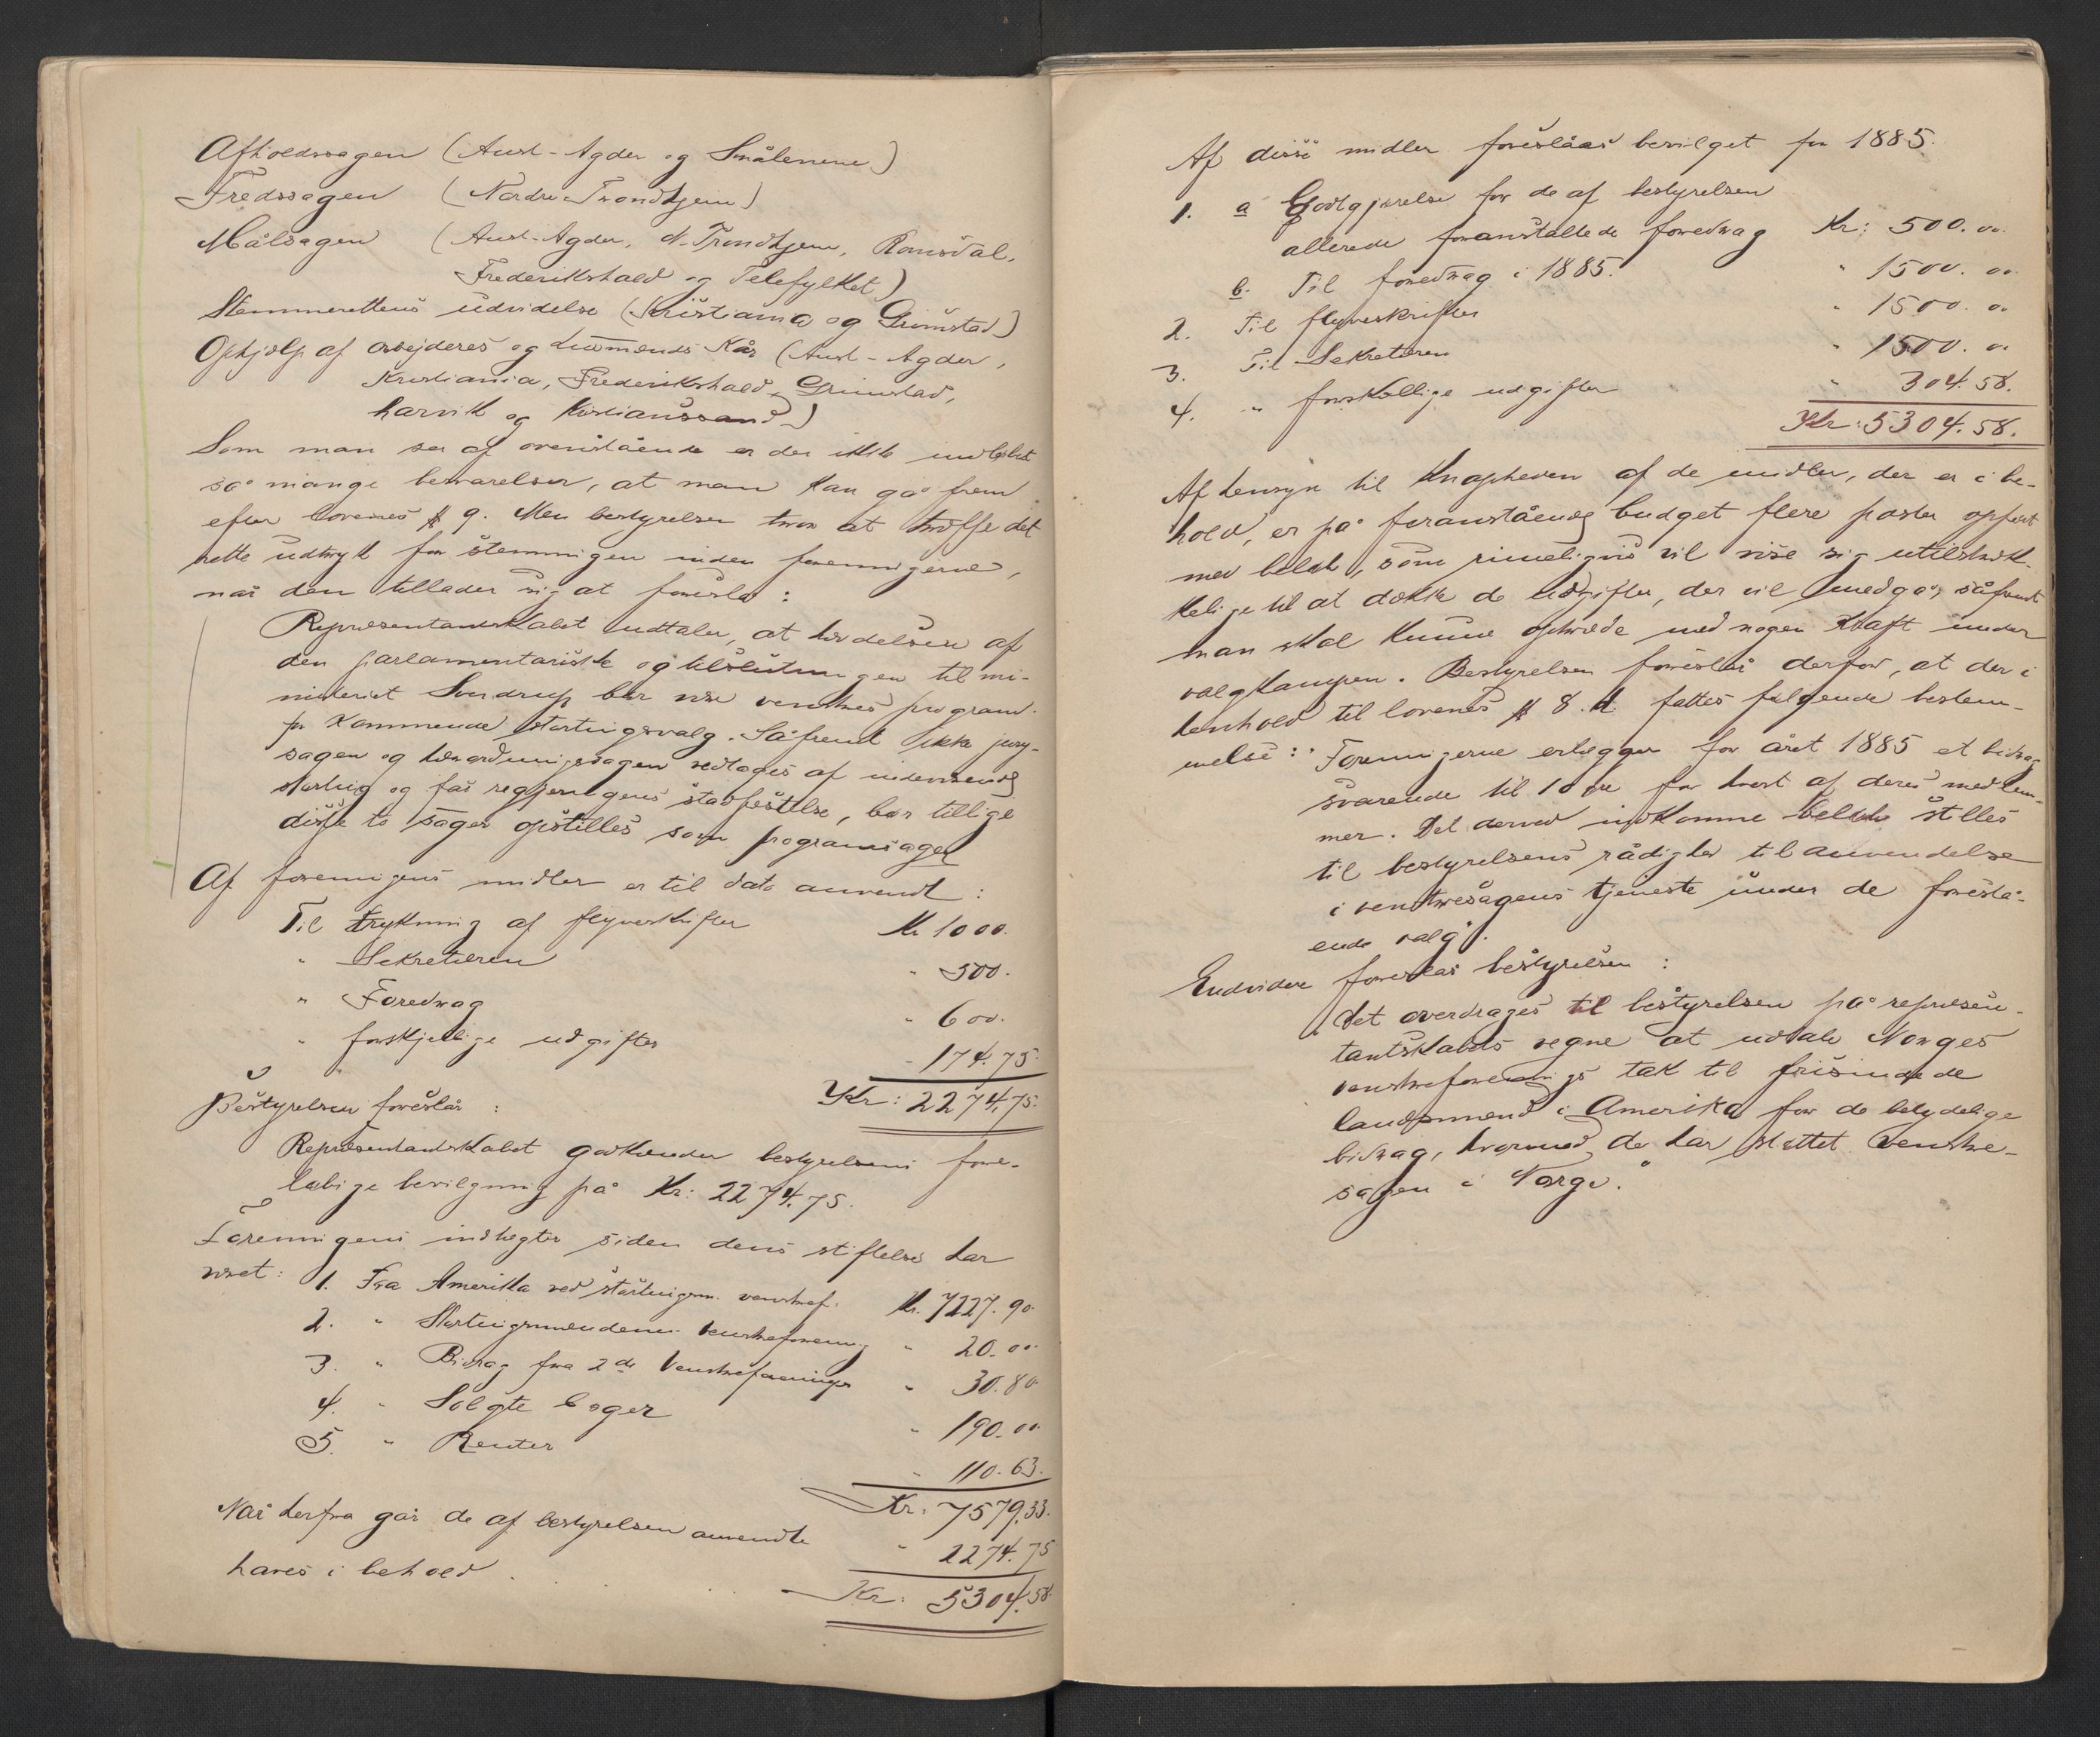 Afholdssagen (Aust-Agder og Smålenene)
Fredssagen (Nordre Trondhjem)
Målsagen (Aust-Agder, N-Trondhjem, Romsdal,
Frederikshald og Telefylket)
Stemmerettens udvidelse (Kristiania og Grimstad)
Ophjælp af arbejderes og husmænds Kår (Aust-Agder,
Kristiania, Frederikshald, Grimstad,
harvik og Kristianssand)
Som man ser af ovenstående er der ikke indløbet
så mange besvarelser, at man kan gå frem
efter lovenes § 9. Men bestyrelsen tror at træffe det
rette udtryk for stemningen inden foreningerne,
når den tillader sig at foreslå:
Repræsentantskabet udtaler, at hævdelsen af
den parlamentariske og tilslutningen til mi-
nisteriet Sverdrup bør være venstres program
for kommende stortingsvalg. Såfremt ikke jury-
sagen og hærordningssagen vedtages af indeværende
storting og får regjeringens stadfæstelse, bør tillige
disse to sager opstilles som programsager
Af foreningens midler er til dato anvendt:
Til trykning af flyveskrifter Kr 1000.
" Sekretæren " 500.
" Foredrag " 600.
" forskjellige udgifter " 174.75.
Kr: 2274,75.
Bestyrelsen foreslår:
Repræsentantskabet godkjender bestyrelsens fore-
løbige bevilgning på Kr: 2274.75.
Foreningens indtægter siden dens stiftelse har
været: 1. Fra Amerika ved stortingsm. venstref. Kr. 7227.90
2. " Stortingsmændenes Venstreforening " 20.00
3. " Bidrag fra 2de Venstreforeninger " 30.80
4. " Solgte bøger " 190.00
5. " Renter " 110.63.
Kr: 7579,33.
Når herfra går de af bestyrelsen anvendte " 2274.75
haves i behold Kr: 5304,58

Af disse midler foreslåes bevilget for 1885.
1. a Godtgjørelse for de af bestyrelsen
allerede foranstaltede foredrag Kr: 500.00
b. Til foredrag i 1885. " 1500.00
2. Til flyveskrifter " 1500.00
3. Til Sekretæren " 1500.00
4. " forskjellige udgifter " 304.58.
Kr: 5304.58.
Af hensyn til Knapheden af de midler, der er i be-
hold, er på foranstående budget flere poster opført
med beløb, som rimeligvis vil vise sig utilstræk-
kelige til at dække de udgifter, der vil medgå, såfremt
man skal kunne optræde med nogen kraft under
valgkampen. Bestyrelsen foreslår derfor, at der i
henhold til lovenes § 8. d. fattes følgende bestem-
melse: "Foreningerne erlægger for året 1885 et bidrag
svarende til 10 øre for hvert af deres medlem-
mer. Det derved indkomne beløb stilles
til bestyrelsens rådighed til anvendelse
i venstresagens tjeneste under de forestå-
ende valg".
Endvidere foreslår bestyrelsen:
"Det overdrages til bestyrelsen på repræsen-
tantskabets vegne at udtale Norges
venstreforenings tak til frisindede
landsmænd i Amerika for de betydelige
bidrag, hvormed de har støttet venstre-
sagen i Norge."